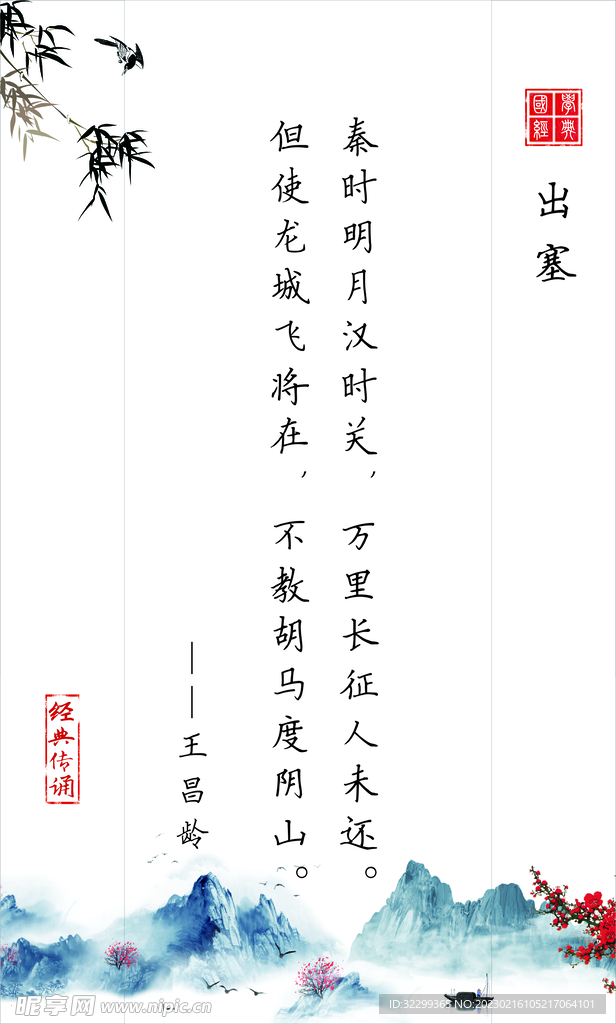 國學經典
出塞
秦时明月汉时关，万里长征人未还。
但使龙城飞将在，不教胡马度阴山。
——王昌龄
经典传诵
昵享网 www.nipic.cn
ID:32299365 NO:20230216105217064101